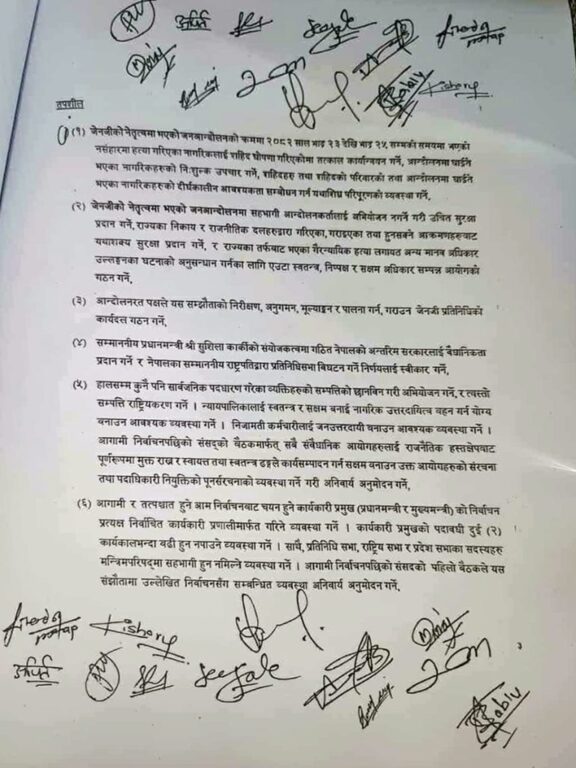 तपशील
(१) जेनजीको नेतृत्वमा भएको जनआन्दोलनको क्रममा २०८२ साल भाद्र २३ देखि भाद्र २५ सम्मको समयमा भएको
नरसंहारमा हत्या गरिएका नागरिकलाई शहिद घोषणा गरिएकोमा तत्काल कार्यान्वयन गर्ने, आन्दोलनमा घाईते
भएका नागरिकहरुको नि:शुल्क उपचार गर्ने, शहिदहरु तथा शहिदको परिवारको तथा आन्दोलनमा घाईते
भएका नागरिकहरुको दीर्घकालीन आवश्यकता सम्बोधन गर्न यथाशिघ्र परिपूरणको व्यवस्था गर्ने,
(२) जेनजीको नेतृत्वमा भएको जनआन्दोलनमा सहभागी आन्दोलनकर्तालाई अभियोजन नगर्ने गरी उचित सुरक्षा
प्रदान गर्ने, राज्यका निकाय र राजनीतिक दलहरुद्वारा गरिएका, गराइएका तथा हुनसक्ने आक्रमणहरुबाट
यथाशक्य सुरक्षा प्रदान गर्ने, र राज्यका तर्फबाट भएका गैरन्यायिक हत्या लगायत अन्य मानव अधिकार
उल्लङ्घनका घटनाको अनुसन्धान गर्नका लागि एउटा स्वतन्त्र, निष्पक्ष र सक्षम अधिकार सम्पन्न आयोगको
गठन गर्ने,
(३) आन्दोलनरत पक्षले यस सम्झौताको निरीक्षण, अनुगमन, मूल्याङ्कन र पालना गर्न, गराउन जेनजी प्रतिनिधिको
कार्यदल गठन गर्ने,
(४) सम्माननीय प्रधानमन्त्री श्री सुशिला कार्कीको संयोजकत्वमा गठित नेपालको अन्तरिम सरकारलाई वैधानिकता
प्रदान गर्ने र नेपालका सम्माननीय राष्ट्रपतिद्वारा प्रतिनिधिसभा विघटन गर्ने निर्णयलाई स्वीकार गर्ने,
(५) हालसम्म कुनै पनि सार्वजनिक पदधारण गरेका व्यक्तिहरुको सम्पत्तिको छानविन गरी अभियोजन गर्ने, र त्यस्तो
सम्पत्ति राष्ट्रियकरण गर्ने । न्यायपालिकालाई स्वतन्त्र र सक्षम बनाई नागरिक उत्तरदायित्व वहन गर्न योग्य
बनाउन आवश्यक व्यवस्था गर्ने । निजामती कर्मचारीलाई जनउत्तरदायी बनाउन आवश्यक व्यवस्था गर्ने ।
आगामी निर्वाचनपछिको संसदको बैठकमार्फत् सबै संवैधानिक आयोगहरुलाई राजनैतिक हस्तक्षेपबाट
पूर्णरुपमा मुक्त राख्न र स्वायत्त तथा स्वतन्त्र ढङ्गले कार्यसम्पादन गर्न सक्षम बनाउन उक्त आयोगहरुको संरचना
तथा पदाधिकारी नियुक्तिको पुनर्संरचनाको व्यवस्था गर्ने गरी अनिवार्य अनुमोदन गर्ने,
(६) आगामी र तत्पश्चात हुने आम निर्वाचनबाट चयन हुने कार्यकारी प्रमुख (प्रधानमन्त्री र मुख्यमन्त्री) को निर्वाचन
प्रत्यक्ष निर्वाचित कार्यकारी प्रणालीमार्फत गरिने व्यवस्था गर्ने । कार्यकारी प्रमुखको पदावधी दुई (२)
कार्यकालभन्दा बढी हुन नपाउने व्यवस्था गर्ने । साथै, प्रतिनिधि सभा, राष्ट्रिय सभा र प्रदेश सभाका सदस्यहरु
मन्त्रिमपरिषद्मा सहभागी हुन नमिल्ने व्यवस्था गर्ने । आगामी निर्वाचनपछिको संसदको पहिलो बैठकले यस
संझौतामा उल्लेखित निर्वाचनसँग सम्बन्धित व्यवस्था अनिवार्य अनुमोदन गर्ने,
Kishory